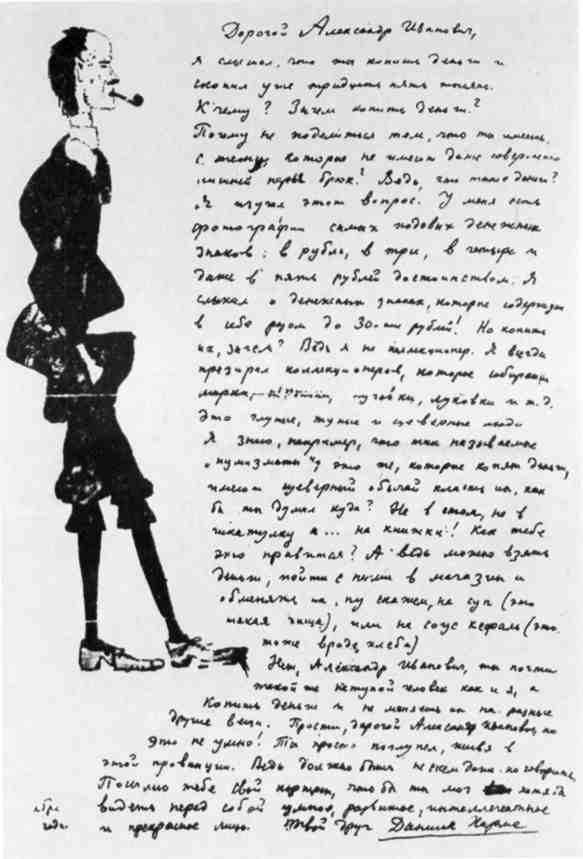 Дорогой Александр Иванович,
я слышал, что ты копишь деньги и
скопил уже тридцать пять тысяч.
К чему? Зачем копить деньги?
Почему не поделиться тем, что ты имеешь,
с теми, которые не имеют даже совершенно
лишней пары брюк? Ведь, что такое деньги?
Я изучал этот вопрос. У меня есть
фотографии самых ходовых денежных
знаков: в рубль, в три, в четыре и
даже в пять рублей достоинством. Я
слыхал о денежных знаках, которые содержат
в себе разом до 30-ти рублей! Но копить
их, зачем? Ведь я не коллекционер. Я всегда
презирал коллекционеров, которые собирают
марки, пуговки, луковки и т.д.
Это глупые, тупые и суеверные люди
Я знаю, например, что так называемые
"нумизматы", это те, которые копят деньги,
имеют суеверный обычай класть их, как
бы ты думал куда? Не в стол, не в
шкатулку а... на книжки! Как тебе
это нравится? А ведь можно взять
деньги, пойти с ними в магазин и
обменять их, ну скажем, на суп (это
такая пища), или на соус кефаль (это
тоже вроде хлеба)
Нет, Александр Иванович, ты почти
такой же нетупой человек как и я, а
копишь деньги и не меняешь их на разные
другие вещи. Прости, дорогой Александр Иванович, но
это не умно! Ты просто поглупел, живя в
этой провинции. Ведь должно быть не с кем даже поговорить,
Посылаю тебе свой портрет, чтобы ты мог хотя бы
видеть перед собой умное, развитое, интеллигентное
и прекрасное лицо. Твой друг Даниил Хармс